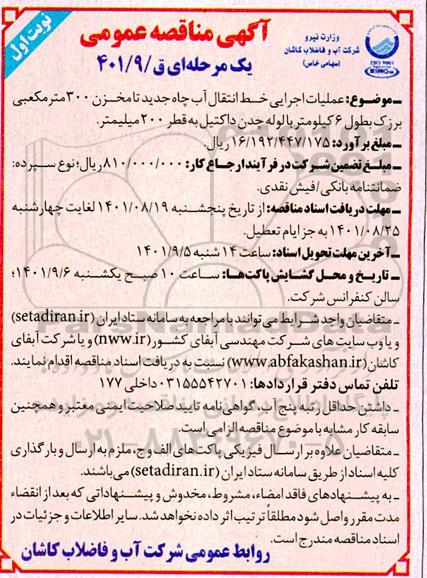 نوبت اول
وزارت نیرو
شرکت آب و فاضلاب کاشان
(سهامی خاص)
ISO 9001
آگهی مناقصه عمومی
یک مرحله‌ای ق/۴۰۱/۹
ـ موضوع: عملیات اجرایی خط انتقال آب چاه جدید تا مخزن ۳۰۰ مترمکعبی
برزک بطول ۶ کیلومتر با لوله چدن داکتیل به قطر ۲۰۰ میلیمتر.
ـ مبلغ برآورد: ۱۶/۱۹۲/۴۴۷/۱۷۵ ریال.
ـ مبلغ تضمین شرکت در فرآیند ارجاع کار: ۸۱۰/۰۰۰/۰۰۰ ریال؛ نوع سپرده:
ضمانتنامه بانکی / فیش نقدی.
ـ مهلت دریافت اسناد مناقصه: از تاریخ پنجشنبه ۱۴۰۱/۰۸/۱۹ لغایت چهارشنبه
۱۴۰۱/۰۸/۲۵ به جز ایام تعطیل.
ـ آخرین مهلت تحویل اسناد: ساعت ۱۴ شنبه ۱۴۰۱/۹/۵
ـ تاریخ و محل گشایش پاکت‌ها: ساعت ۱۰ صبح یکشنبه ۱۴۰۱/۹/۶؛
سالن کنفرانس شرکت.
ـ متقاضیان واجد شرایط می‌توانند با مراجعه به سامانه ستاد ایران (setadiran.ir)
و یا وب سایت های شرکت مهندسی آبفای کشور (nww.ir) و یا شرکت آبفای
کاشان (www.abfakashan.ir) نسبت به دریافت اسناد مناقصه اقدام نمایند.
تلفن تماس دفتر قراردادها: ۰۳۱۵۵۵۴۲۷۰۱ داخلی ۱۷۷
ـ داشتن حداقل رتبه پنج آب، گواهی‌نامه تایید صلاحیت ایمنی معتبر و همچنین
سابقه کار مشابه با موضوع مناقصه الزامی است.
ـ متقاضیان علاوه بر ارسال فیزیکی پاکت‌های الف و ج، ملزم به ارسال و بارگذاری
کلیه اسناد از طریق سامانه ستاد ایران (setadiran.ir) می‌باشند.
ـ به پیشنهادهای فاقد امضاء، مشروط، مخدوش و پیشنهاداتی که بعد از انقضاء
مدت مقرر واصل شود مطلقاً ترتیب اثر داده نخواهد شد. سایر اطلاعات و جزئیات در
اسناد مناقصه مندرج است.
روابط عمومی شرکت آب و فاضلاب کاشان